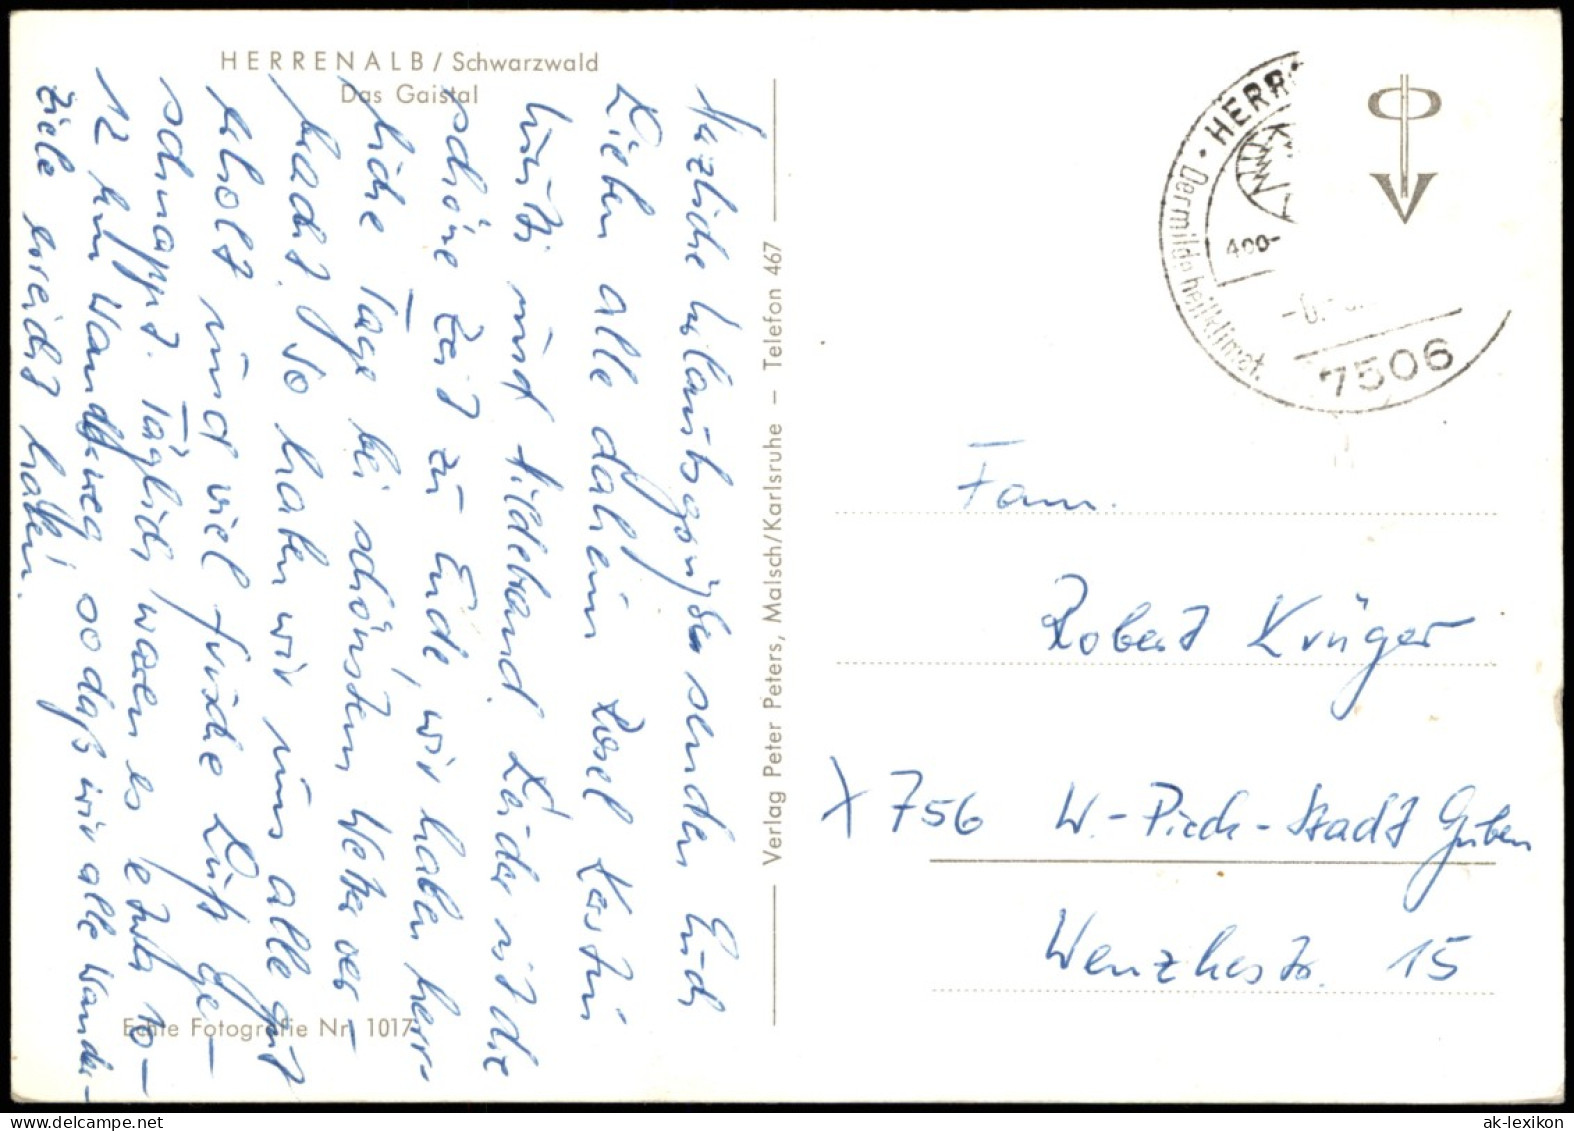 HERRENALB / Schwarzwald
Das Gaistal
Herzliche Urlaubsgrüße senden Euch
Lieben alle daheim Rosel Kerstin
und Hildebrand. Leider ist die
schöne Zeit zu Ende, wir haben herr-
liche Tage bei schönsten Wetter ver-
bracht. So haben wir uns alle gut
erholt und viel frische Luft ge-
schnappt. Täglich waren es etwa 10-
12 km Wandweg sodaß wir alle Wander-
ziele erreicht haben.
Echte Fotografie Nr. 1017
Verlag Peter Peters, Malsch/Karlsruhe – Telefon 467
HERR
Der milde heilklimat.
400-
7506
PV
Fam.
Robert Krüger
X 756 W.-Pieck-Stadt Guben
Wenzkestr. 15
ak-lexikon